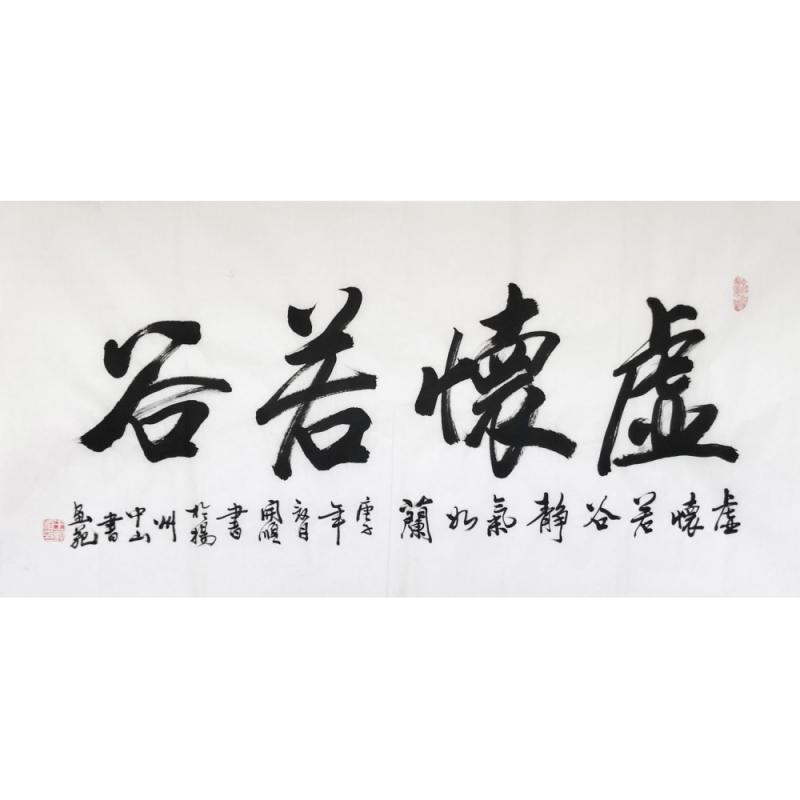 虛懷若谷
虛懷若谷靜氣如蘭庚子年初月開順書於揚州中山書畫苑